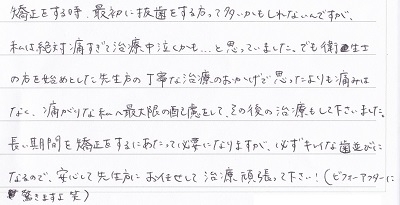 矯正をする時、最初に抜歯をする方って多いかもしれないんですが、
私は絶対痛すぎて治療中泣くかも…と思っていました。でも衛生士
の方を始めとした先生方の丁寧な治療のおかげで思ったよりも痛みは
なく、痛がりな私へ最大限の配慮をして、その後の治療もして下さいました。
長い期間を矯正をするにあたって必要になりますが、必ずキレイな歯並びに
なるので、安心して先生方にお任せして治療頑張って下さい！(ビフォーアフターに
驚きますよ笑)